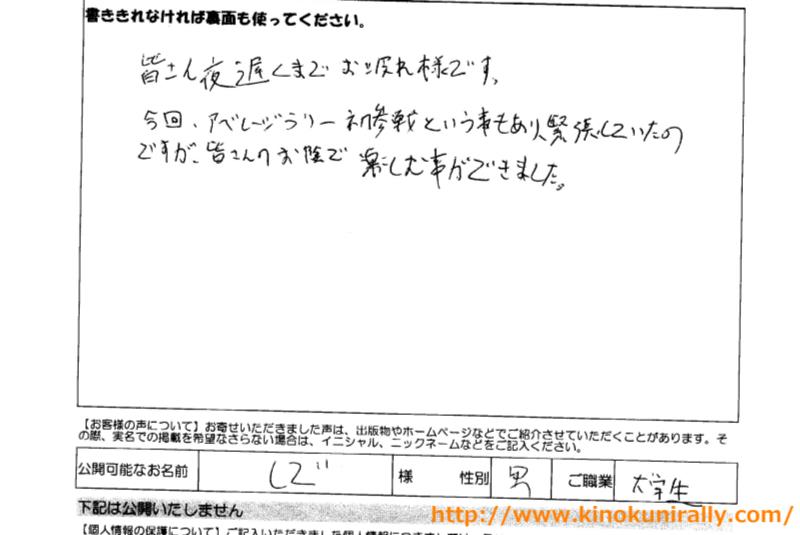 書ききれなければ裏面も使ってください。
皆さん夜遅くまでお疲れ様です。
今回、アベレージラリー初参戦という事もあり、緊張していたの
ですが、皆さんのお陰で楽しむ事ができました。
【お客様の声について】お寄せいただきました声は、出版物やホームページなどでご紹介させていただくことがあります。そ
の際、実名での掲載を希望なさらない場合は、イニシャル、ニックネームなどをご記入ください。
公開可能なお名前 しど 様 性別 男 ご職業 大学生
下記は公開いたしません
http://www.kinokunirally.com/
【個人情報の保護について】ご記入いただきました個人情報に